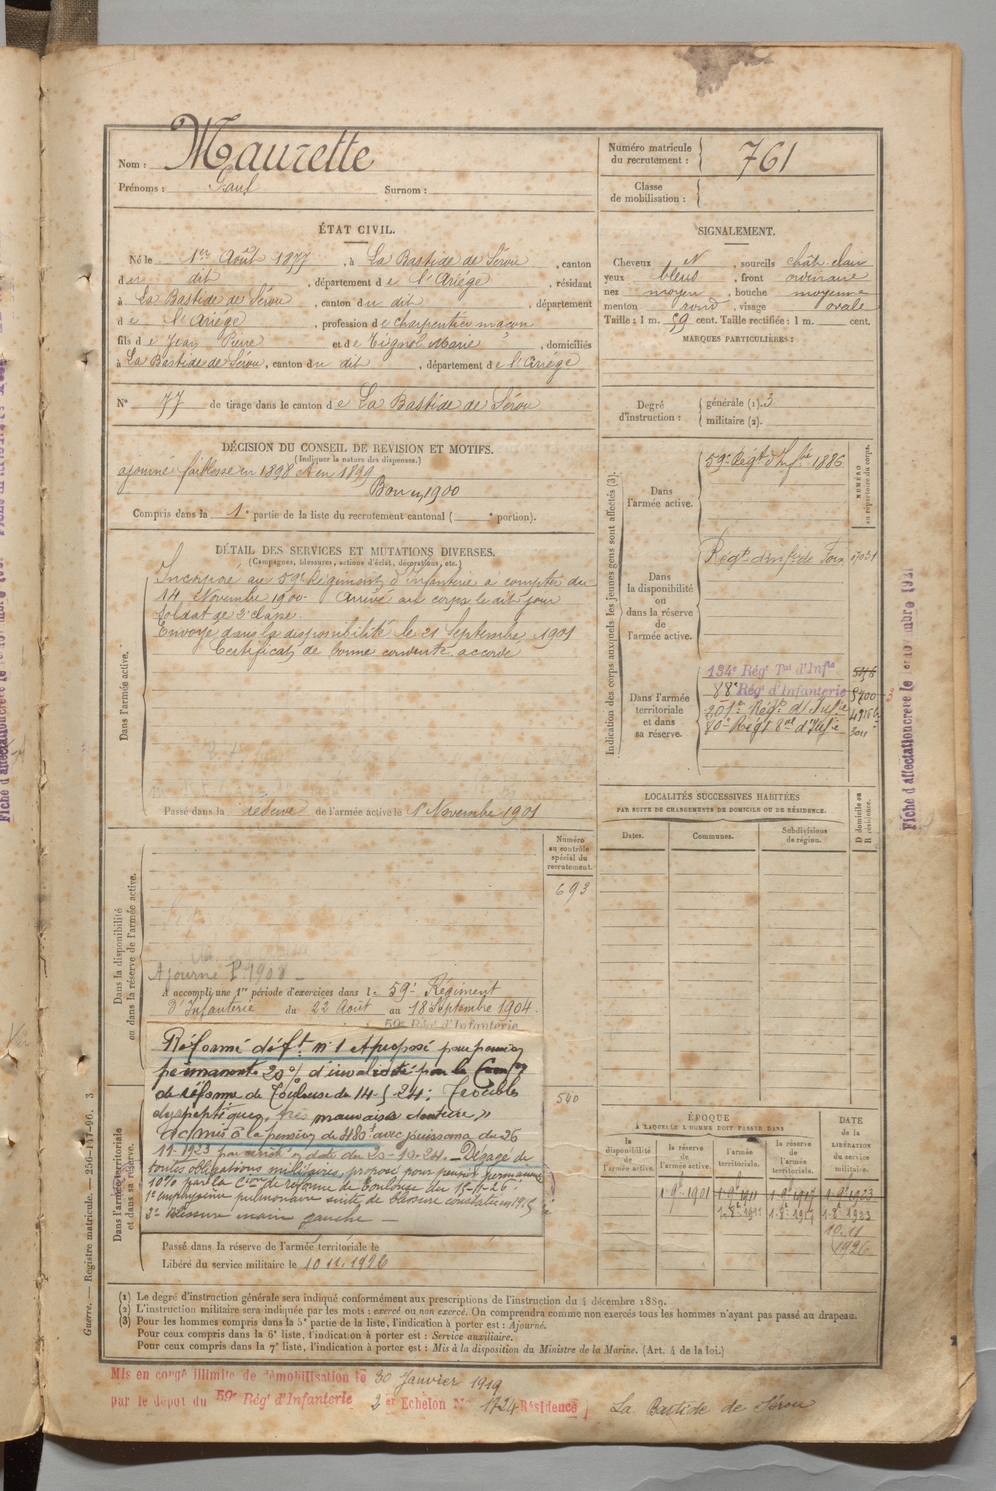 Nom : Maurette
Prénoms : Paul Surnom :
Numéro matricule
du recrutement : 761
Classe
de mobilisation :
ÉTAT CIVIL.
Né le 1er Août 1877, à La Bastide de Sérou, canton
du dit, département de l'Ariège, résidant
à La Bastide de Sérou, canton du dit, département
de l'Ariège, profession de charpentier maçon
fils de Jean Pierre et de Eigne Marie, domiciliés
à La Bastide de Sérou, canton du dit, département de l'Ariège
N° 77 de tirage dans le canton de La Bastide de Sérou
SIGNALEMENT.
Cheveux N, sourcils chât. clair
yeux bleus, front ordinaire
nez moyen, bouche moyenne
menton rond, visage ovale
Taille : 1 m. 59 cent. Taille rectifiée : 1 m. cent.
MARQUES PARTICULIÈRES :
Degré
d'instruction :
générale (1). 3
militaire (2).
DÉCISION DU CONSEIL DE REVISION ET MOTIFS.
(Indiquer la nature des dispenses.)
ajourné faiblesse en 1898 et en 1899
Bon en 1900
Compris dans la 1e partie de la liste du recrutement cantonal ( e portion).
DÉTAIL DES SERVICES ET MUTATIONS DIVERSES.
(Campagnes, blessures, actions d'éclat, décorations, etc.)
Dans l'armée active.
Incorporé au 59e Régiment d'infanterie à compter du
14 Novembre 1900. Arrivé au corps le dit jour
soldat de 2e classe.
Envoyé dans la disponibilité le 21 Septembre 1901
Certificat de bonne conduite accordé
Passé dans la réserve de l'armée active le 1er Novembre 1901
Indication des corps auxquels les jeunes gens sont affectés (3).
NUMÉRO
au répertoire du corps.
Dans
l'armée active.
59e Régt d'Inf.rie 1886
Dans
la disponibilité
ou
dans la réserve
de
l'armée active.
Régt d'inf.ie de Foix
Dans l'armée
territoriale
et dans
sa réserve.
134e Régt Tal d'Infie
88e Régt d'Infanterie 5700
201e Régt d'Infie
80e Régt Ral d'Infie
LOCALITÉS SUCCESSIVES HABITÉES
PAR SUITE DE CHANGEMENTS DE DOMICILE OU DE RÉSIDENCE.
Dates. Communes. Subdivisions
de région.
D domicile ou
R résidence.
Numéro
au contrôle
spécial du
recrutement.
693
Dans la disponibilité
ou dans la réserve de l'armée active.
Ajourné P. 1908
A accompli une 1re période d'exercices dans le 59e Régiment
d'Infanterie du 22 Août au 18 Septembre 1904
59e Rég. d'Infanterie
540
Dans l'armée territoriale
et dans sa réserve.
Réformé déf.t n° 1 et proposé pour pension
permanente 20 % d'invalidité par la Comon
de réforme de Toulouse du 14-5-24 : Troubles
dyspeptiques, très mauvaise denture »
Admis à la pension de 480f avec jouissance du 26
11-1923 par arrêté en date du 20-10-24. _ Dégagé de
toutes obligations militaires, proposé pour pension permanente
10 % par la Cion de réforme de Toulouse du
1e emphysème pulmonaire suite de blessure constatée en 1915
2e Blessure main gauche _
Passé dans la réserve de l'armée territoriale le
Libéré du service militaire le 10.11.1926
ÉPOQUE
À LAQUELLE L'HOMME DOIT PASSER DANS
DATE
de la
LIBÉRATION
du service
militaire.
la
disponibilité
de
l'armée active.
la réserve
de
l'armée active.
l'armée
territoriale.
la réserve
de
l'armée
territoriale.
1-9e-1901 1-9e-1911 1-9e-1917 1-9e-1923
1-8e-1911 1-8e-1917 1-8e-1923
10-11
1926
(1) Le degré d'instruction générale sera indiqué conformément aux prescriptions de l'instruction du 4 décembre 1889.
(2) L'instruction militaire sera indiquée par les mots : exercé ou non exercé. On comprendra comme non exercés tous les hommes n'ayant pas passé au drapeau.
(3) Pour les hommes compris dans la 5e partie de la liste, l'indication à porter est : Ajourné.
Pour ceux compris dans la 6e liste, l'indication à porter est : Service auxiliaire.
Pour ceux compris dans la 7e liste, l'indication à porter est : Mis à la disposition du Ministre de la Marine. (Art. 4 de la loi.)
Guerre. — Registre matricule. — 256-147-96. 3
Mis en congé illimité de démobilisation le 30 Janvier 1919
par le dépôt du 59e Régt d'Infanterie 2 er Echelon N° 1724 Résidence La Bastide de Sérou